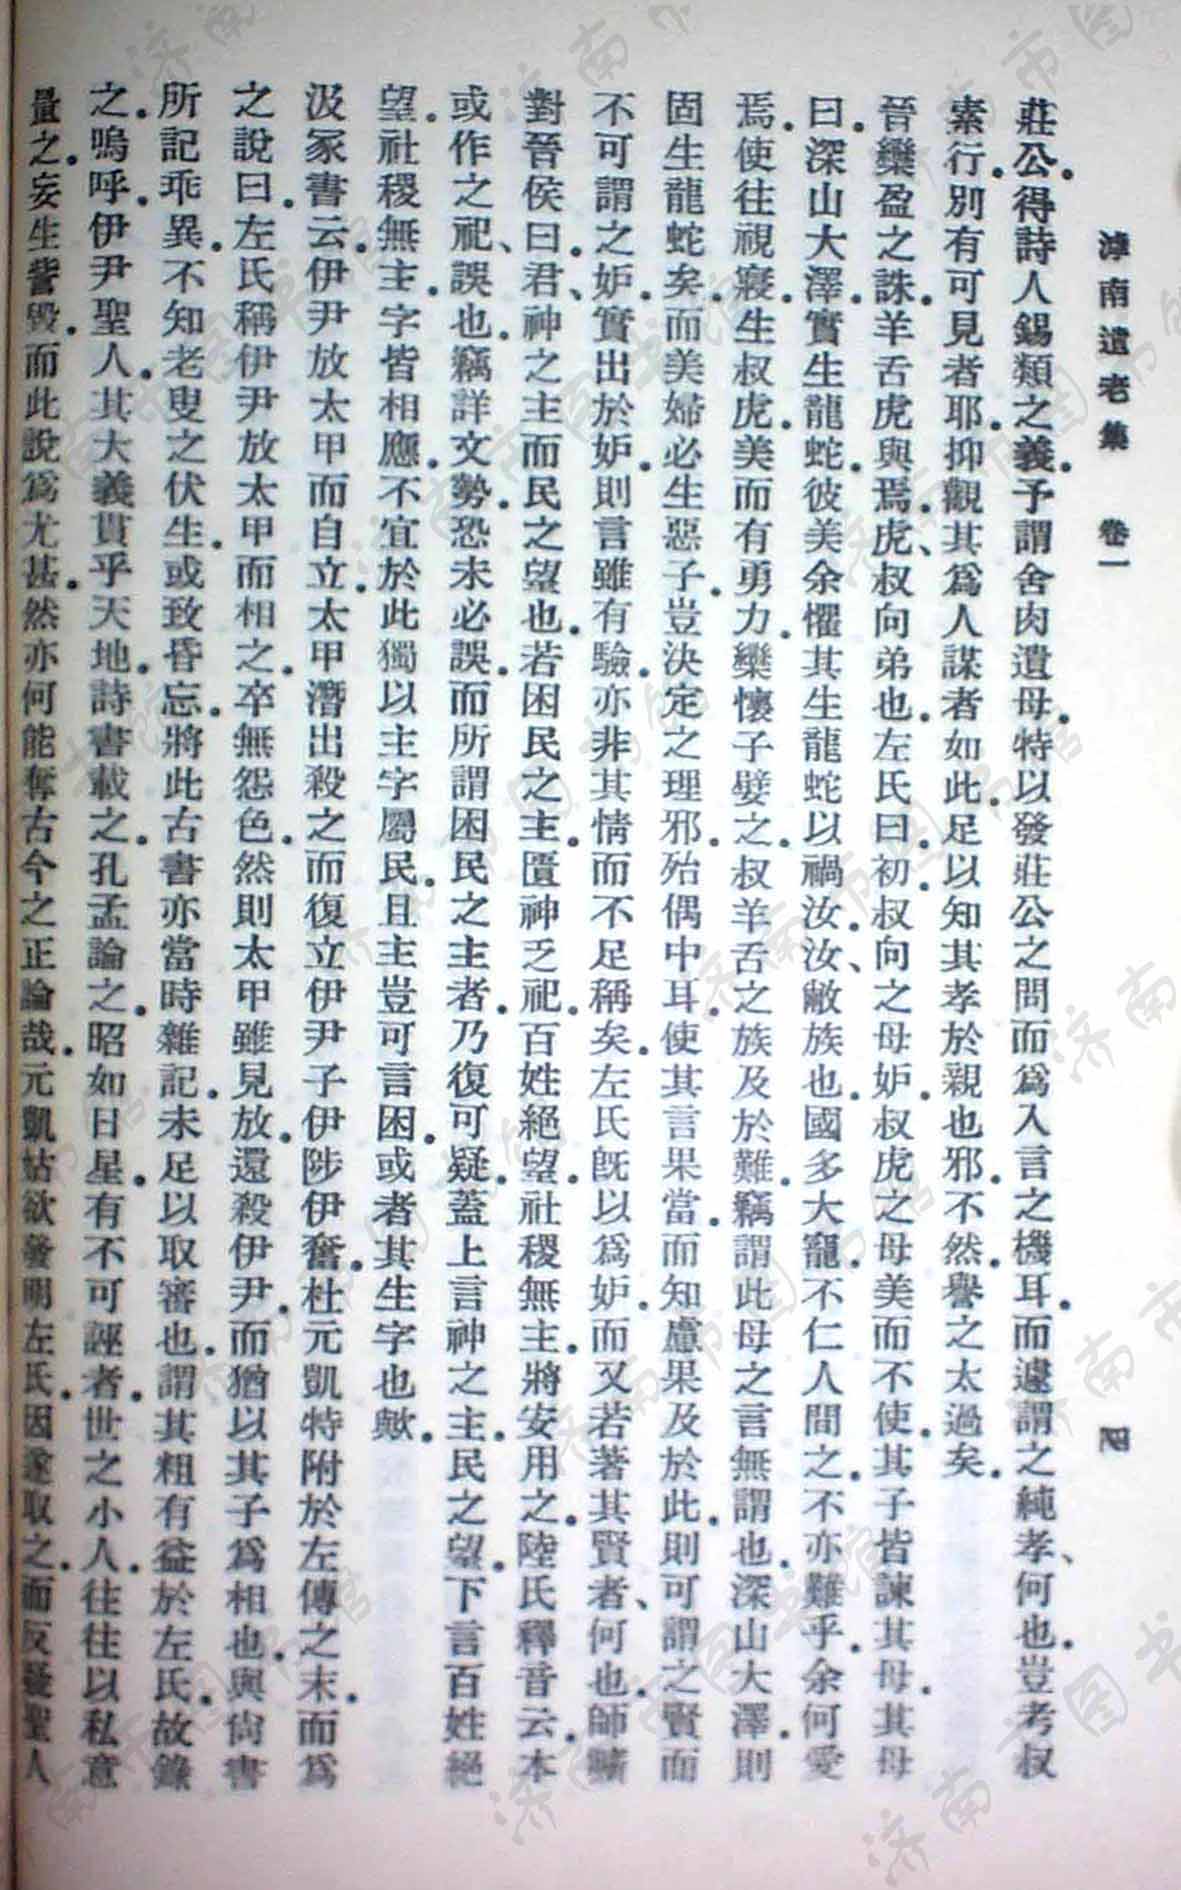 滹南遺老集　卷一　四
莊公。得詩人錫類之義。予謂舍肉遺母。特以發莊公之問而爲入言之機耳。而遽謂之純孝、何也。豈考叔
素行。別有可見者耶。抑觀其爲人謀者如此。足以知其孝於親也邪。不然。譽之太過矣。
晉欒盈之誅。羊舌虎與焉。虎、叔向弟也。左氏曰。初。叔向之母妒。叔虎之母美而不使。其子皆諫其母。其母
曰。深山大澤。實生龍蛇。彼美。余懼其生龍蛇以禍汝。汝、敝族也。國多大寵。不仁人間之。不亦難乎。余何愛
焉。使往視寢。生叔虎。美而有勇力。欒懷子嬖之。故羊舌之族及於難。竊謂此母之言無謂也。深山大澤。則
固生龍蛇矣。而美婦必生惡子。豈決定之理邪。殆偶中耳。使其言果當。而知慮果及於此。則可謂之賢而
不可謂之妒。實出於妒。則言雖有驗。亦非其情而不足稱矣。左氏旣以爲妒。而又若著其賢者、何也。師曠
對晉侯曰。君、神之主而民之望也。若困民之主。匱神乏祀。百姓絕望。社稷無主。將安用之。陸氏釋音云。本
或作之祀、誤也。竊詳文勢。恐未必誤。而所謂困民之主者。乃復可疑。蓋上言神之主。民之望。下言百姓絕
望。社稷無主。字皆相應。不宜於此獨以主字屬民。且主豈可言困。或者其生字也歟。
汲冢書云。伊尹放太甲而自立。太甲潛出殺之而復立伊尹子伊陟伊奮。杜元凱特附於左傳之末。而爲
之說曰。左氏稱伊尹放太甲而相之。卒無怨色。然則太甲雖見放。還殺伊尹。而猶以其子爲相也。與尙書
所記乖異。不知老叟之伏生。或致昏忘。將此古書亦當時雜記。未足以取審也。謂其粗有益於左氏。故錄
之。嗚呼。伊尹聖人。其大義貫乎天地。詩書載之。孔孟論之。昭如日星。有不可誣者。世之小人。往往以私意
量之。妄生訾毀。而此說爲尤甚。然亦何能奪古今之正論哉。元凱姑欲發明左氏。因遂取之。而反疑聖人